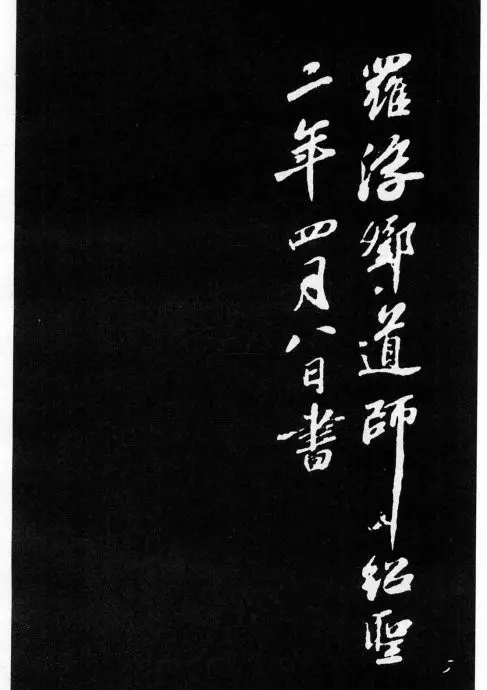 羅浮鄧道師紹聖
二年四月八日書